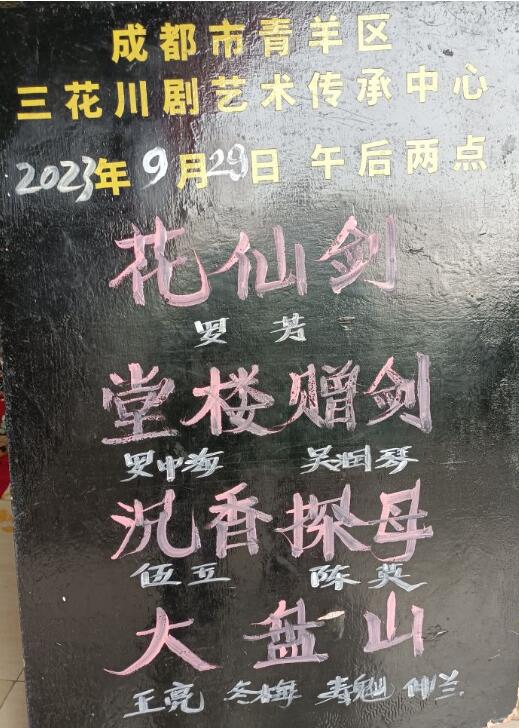 成都市青羊区
三花川剧艺术传承中心
2023年9月29日 午后两点
花仙剑
罗 芳
堂楼赠剑
罗中海 吴润琴
沉香探母
伍立 陈英
大盘山
王亮 冬梅 寿魁